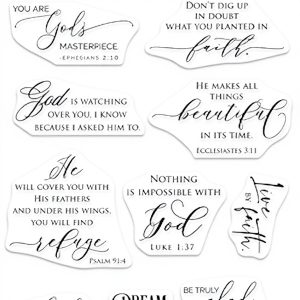 YOU ARE
God's
MASTERPIECE
-EPHEDIANS 2:10
DON'T DIG UP
IN DOUBT
WHAT YOU PLANTED IN
faith.
God IS WATCHING
OVER YOU, I KNOW
BECAUSE I ASKED HIM TO.
HE MAKES ALL
THINGS
beautiful
IN ITS TIME.
ECCLESIASTES 3:11
He
WILL COVER YOU WITH
HIS FEATHERS
AND UNDER HIS WINGS,
YOU WILL FIND
refuge
PSALM 91:4
NOTHING
IS IMPOSSIBLE WITH
God
LUKE 1:37
Live
BY
faith.
DREAM
BE TRULY